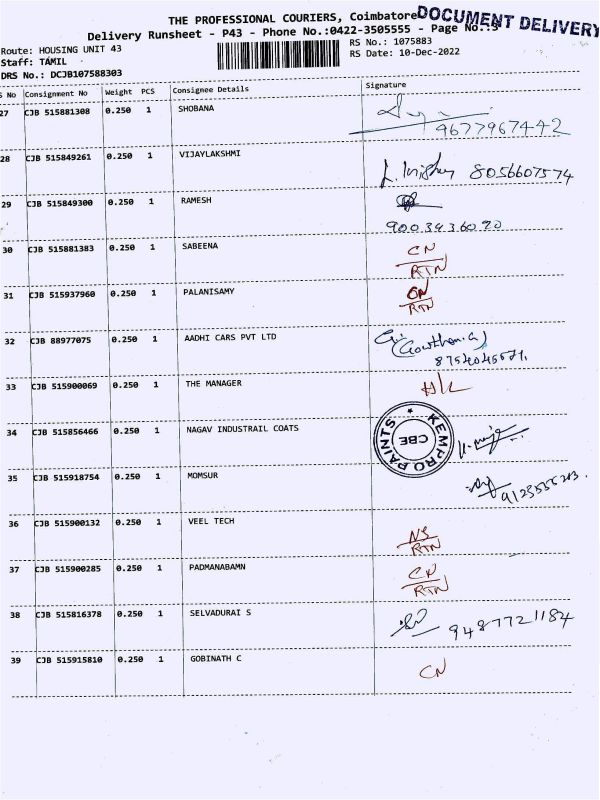 THE PROFESSIONAL COURIERS, Coimbatore
DOCUMENT DELIVERY
Delivery Runsheet - P43 - Phone No.:0422-3505555 - Page No.:3
Route: HOUSING UNIT 43
RS No.: 1075883
Staff: TAMIL
RS Date: 10-Dec-2022
DRS No.: DCJB107588303
S No Consignment No Weight PCS Consignee Details Signature
27 CJB 515881308 0.250 1 SHOBANA
9677967442
28 CJB 515849261 0.250 1 VIJAYLAKSHMI
8056607574
29 CJB 515849300 0.250 1 RAMESH
9003936090
30 CJB 515881383 0.250 1 SABEENA CN
RTN
31 CJB 515937960 0.250 1 PALANISAMY CN
RTN
32 CJB 88977075 0.250 1 AADHI CARS PVT LTD
(Gowtham.G)
33 CJB 515900069 0.250 1 THE MANAGER
34 CJB 515856466 0.250 1 NAGAV INDUSTRAIL COATS
KEMPRO PAINTS
CBE
35 CJB 515918754 0.250 1 MOMSUR
36 CJB 515900132 0.250 1 VEEL TECH
NS
RTN
37 CJB 515900285 0.250 1 PADMANABAMN
CN
RTN
38 CJB 515816378 0.250 1 SELVADURAI S
9487721184
39 CJB 515915810 0.250 1 GOBINATH C
CN